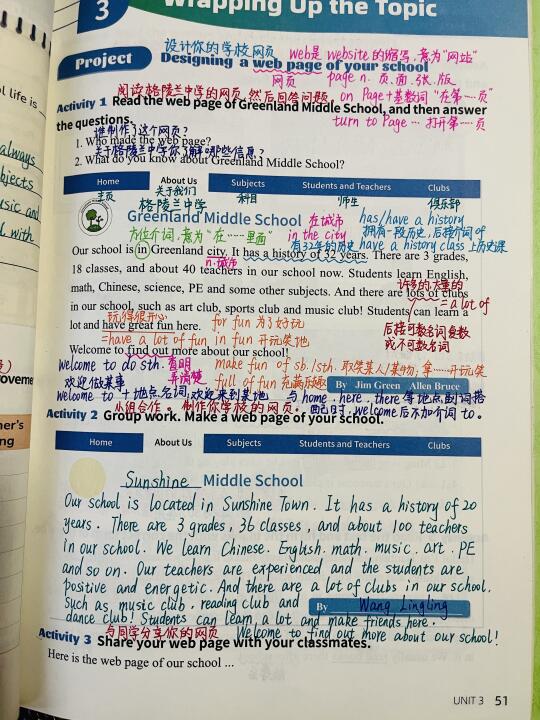 3 Wrapping Up the Topic
设计你的学校网页 web是 website的缩写,意为“网站”
Project Designing a web page of your school
网页 page n. 页.面.张.版
阅读格陵兰中学的网页,然后回答问题 on Page+基数词 “在第…页”
Activity 1 Read the web page of Greenland Middle School, and then answer
the questions. turn to Page … 打开第…页
谁制作了这个网页?
1. Who made the web page?
关于格陵兰中学你了解哪些信息?
2. What do you know about Greenland Middle School?
Home About Us Subjects Students and Teachers Clubs
主页 关于我们 科目 师生 俱乐部
格陵兰中学
Greenland Middle School 在城市 has/have a history
方位介词,意为“在……里面” in the city 拥有一段历史,后接介词of
有32年的历史 have a history class 上历史课
Our school is in Greenland city. It has a history of 32 years. There are 3 grades,
n.城市
18 classes, and about 40 teachers in our school now. Students learn English,
math, Chinese, science, PE and some other subjects. And there are lots of clubs
许多的,大量的
in our school, such as art club, sports club and music club! Students can learn a
= a lot of
玩得很开心 for fun 为了好玩
lot and have great fun here.
后接可数名词复数
或不可数名词
=have a lot of fun in fun 开玩笑地
Welcome to find out more about our school!
welcome to do sth. 查明 make fun of sb./sth. 取笑某人/某物;拿…开玩笑
欢迎做某事 弄清楚 full of fun 充满乐趣 By Jim Green Allen Bruce
welcome to +地点名词,欢迎来到某地 与home.here.there等地点副词搭
小组合作。制作你学校的网页。 配时,welcome后不加介词to。
Activity 2 Group work. Make a web page of your school.
Home About Us Subjects Students and Teachers Clubs
Sunshine Middle School
Our school is located in Sunshine Town. It has a history of 20
years. There are 3 grades, 36 classes, and about 100 teachers
in our school. We learn Chinese. English. math. music. art. PE
and so on. Our teachers are experienced and the students are
positive and energetic. And there are a lot of clubs in our school.
Such as, music club, reading club and By Wang Lingling
dance club! Students can learn a lot and make friends here.
与同学分享你的网页 Welcome to find out more about our school!
Activity 3 Share your web page with your classmates.
Here is the web page of our school ...
UNIT 3 51
l life is
always
bjects
usic and
l with
roveme
her's
ng